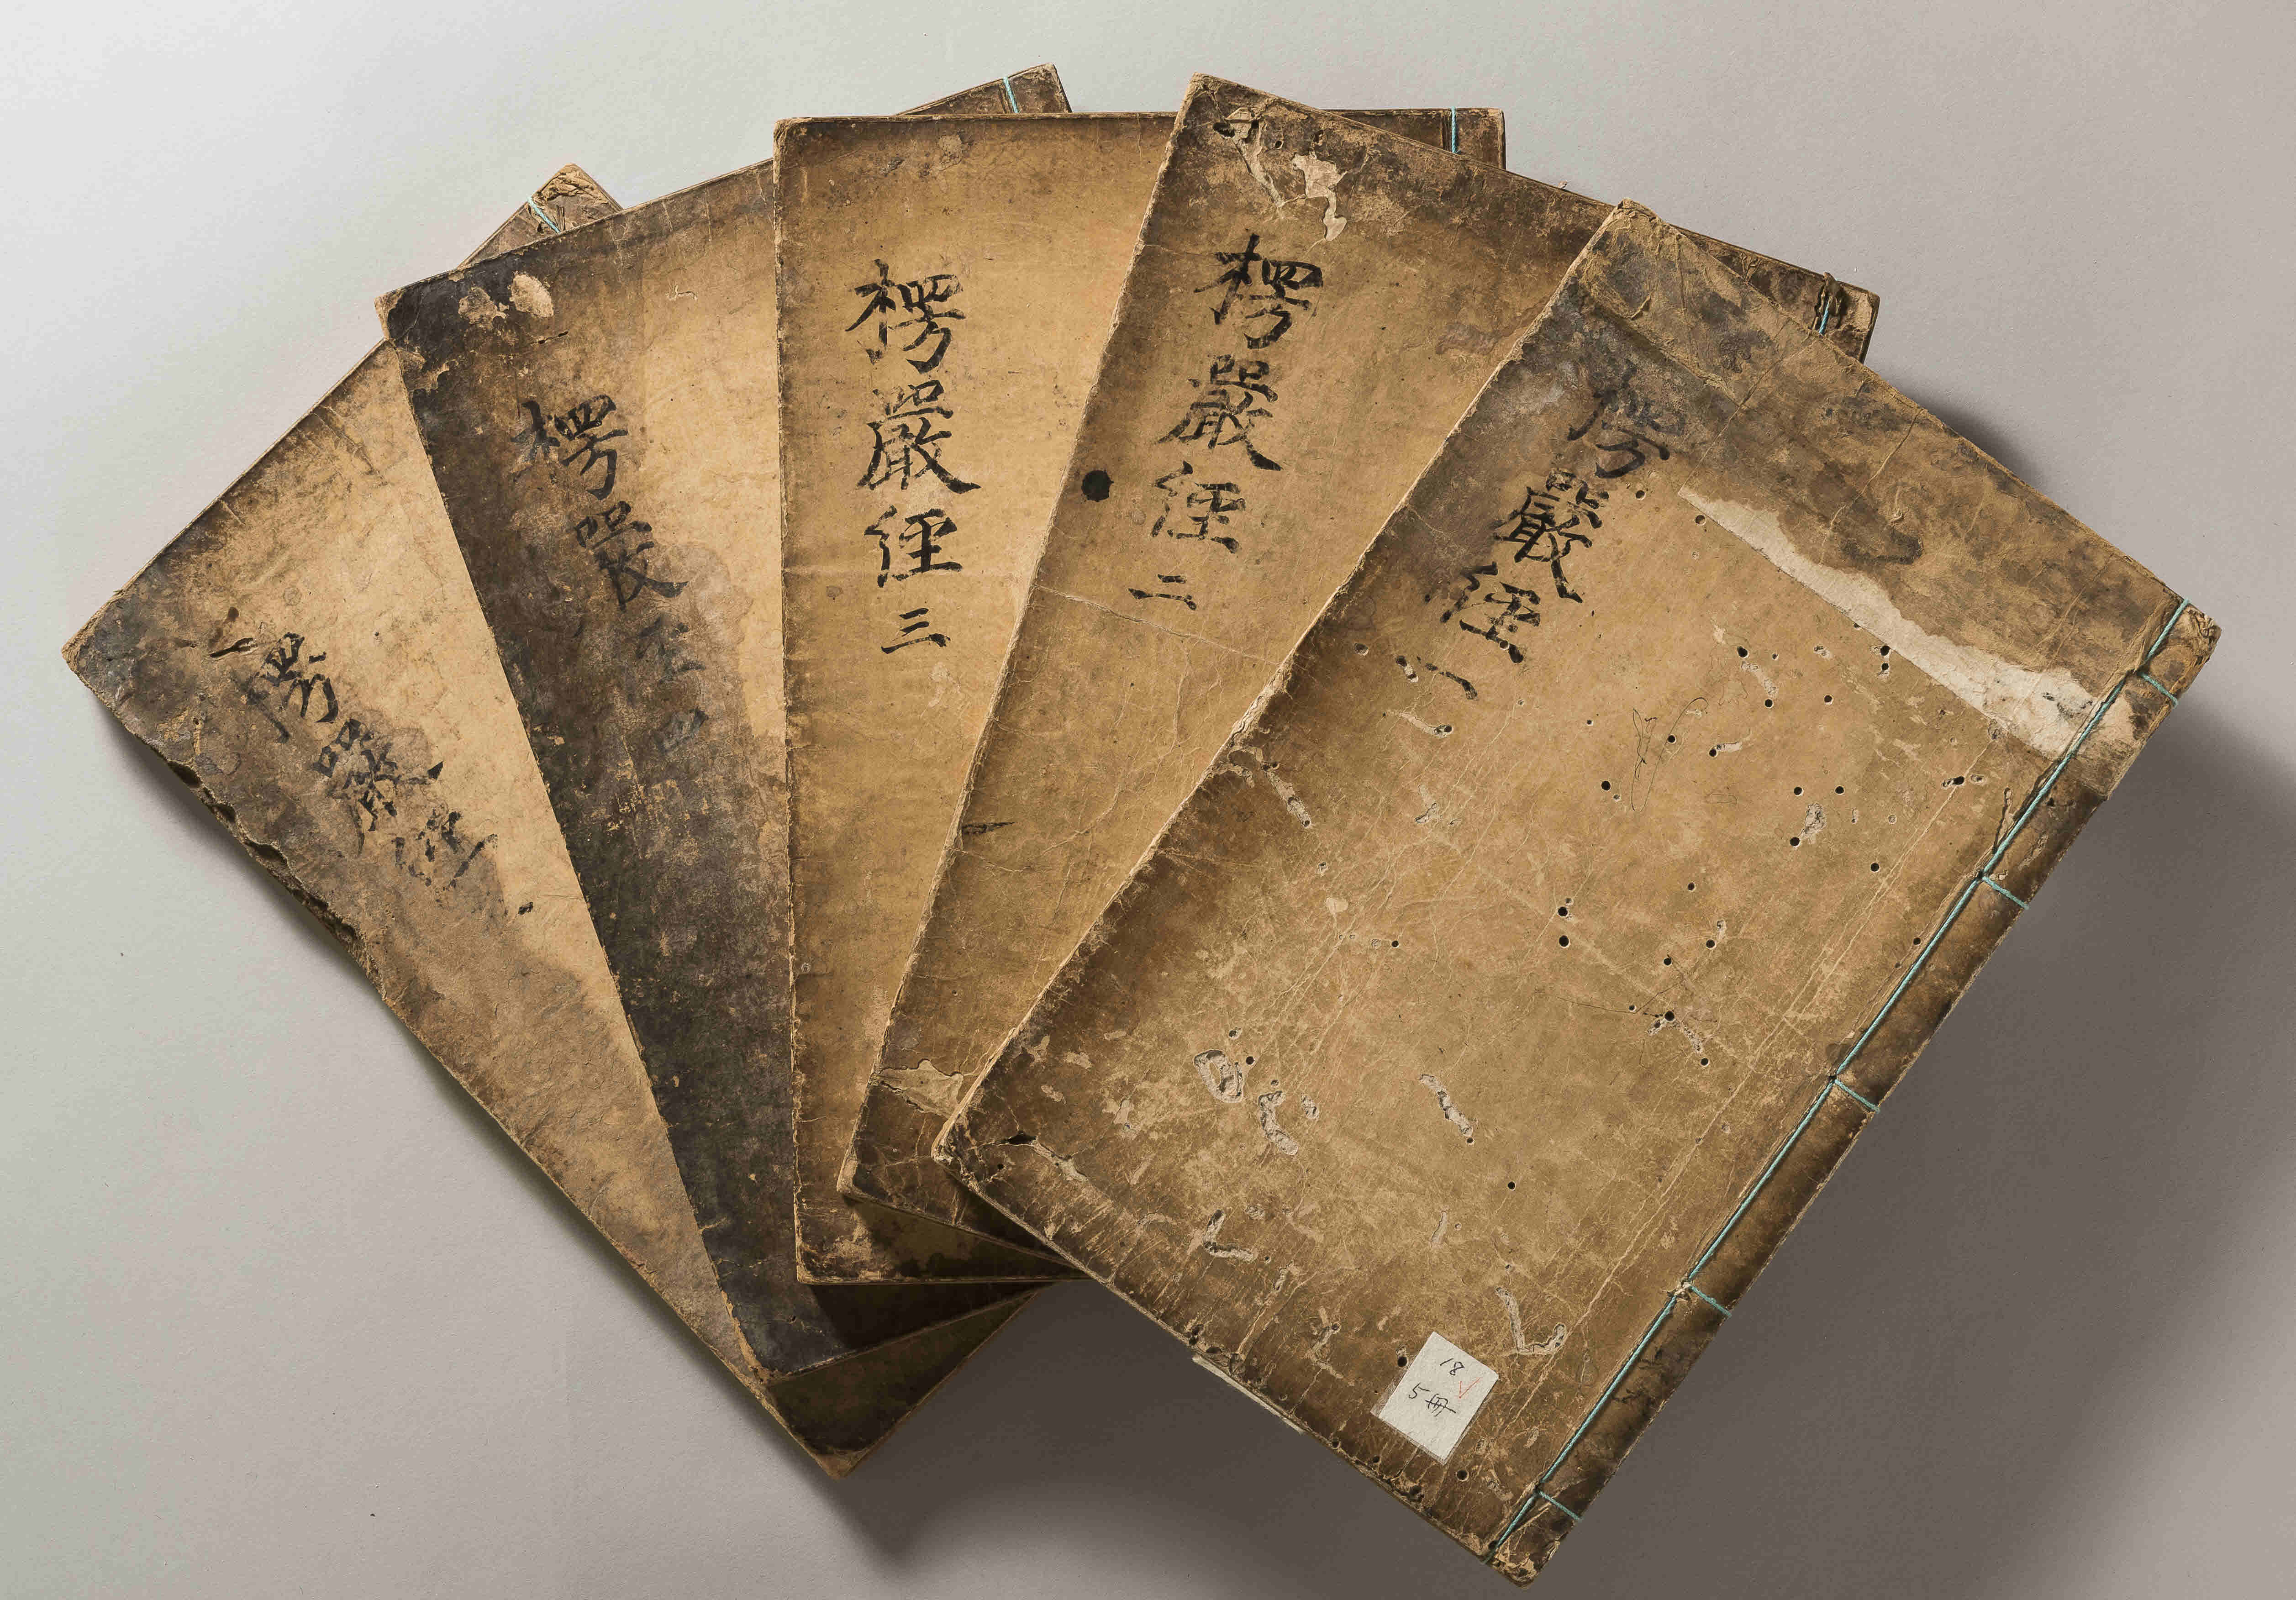 楞嚴經一
楞嚴經二
楞嚴經三
楞嚴經四
楞嚴經
18
5冊